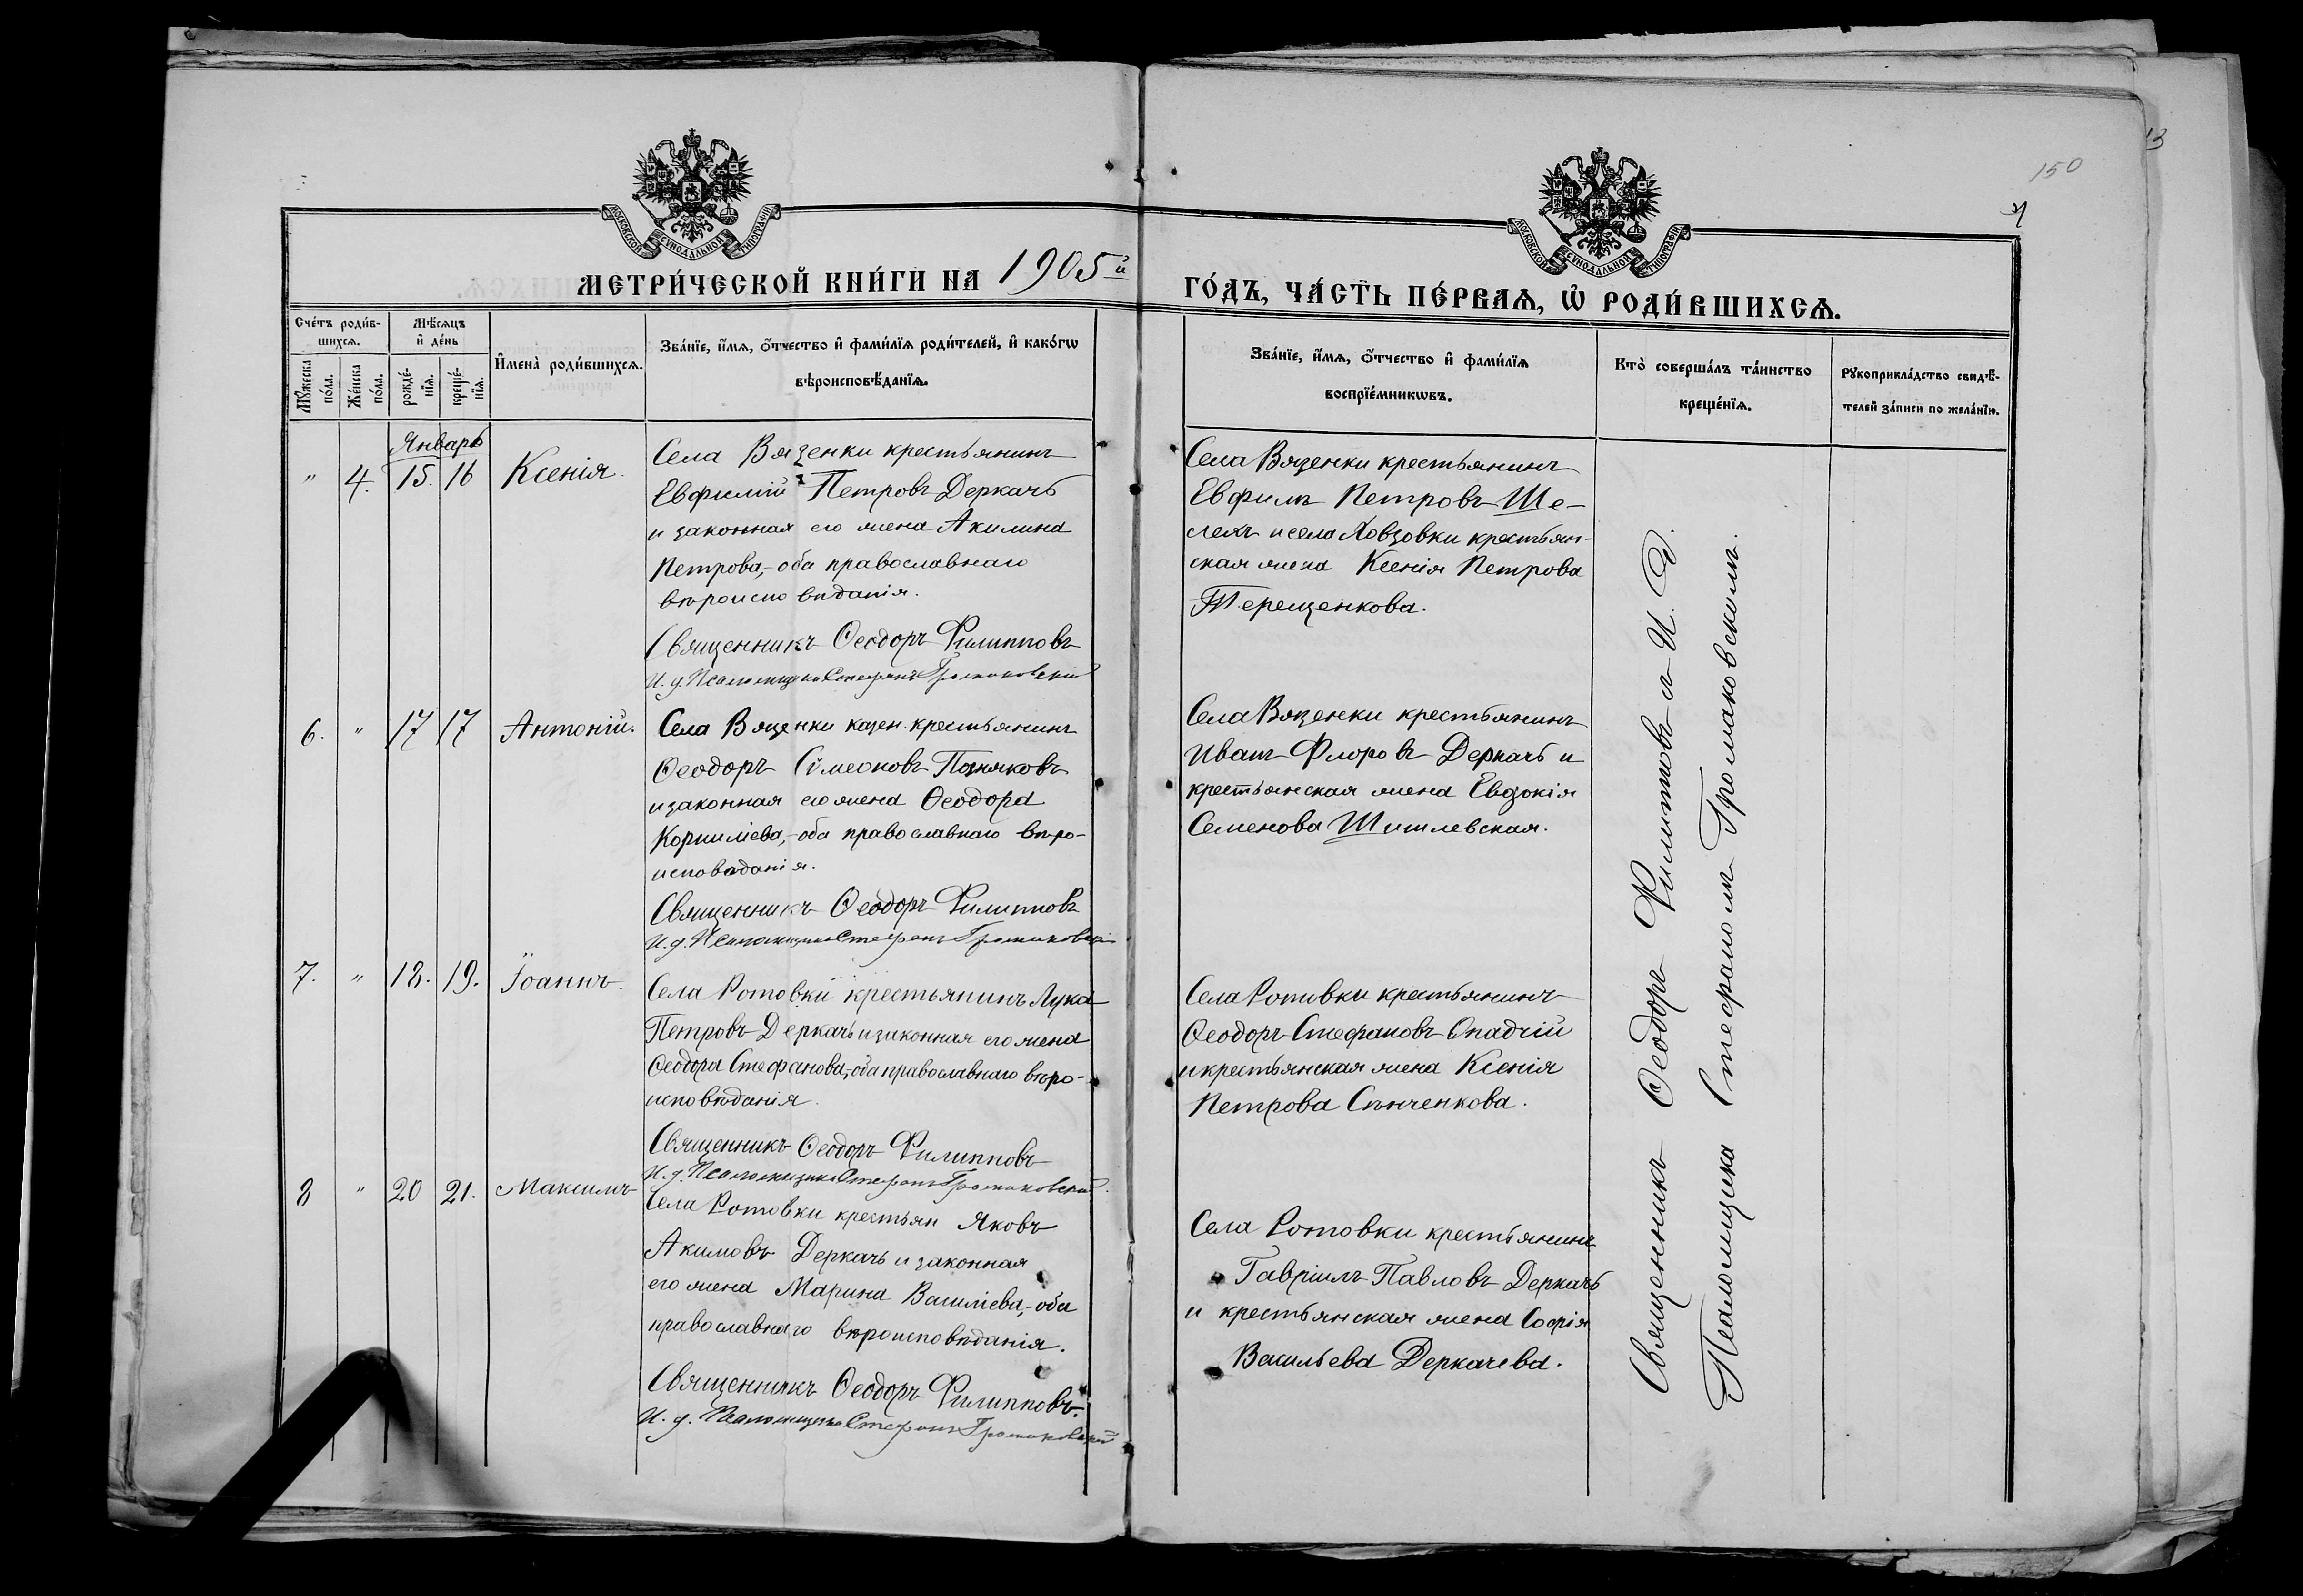 150
МОСКОВСКОЙ СѴНОДАЛЬНОЙ ТИПОГРАФІИ
МОСКОВСКОЙ СѴНОДАЛЬНОЙ ТИПОГРАФІИ
МЕТРИ́ЧЕСКОЙ КНИ́ГИ НА 1905й
ГО́ДЪ, ЧА́СТЬ ПЕ́РВАѦ, Ѽ РОДИ́ВШИХСѦ.
Сче́тъ роди́в-
шихсѧ.
Мꙋжеска
по́ла.
Же́нска
по́ла.
Мѣ́сѧцъ
и҆ де́нь
рожде́-
нїѧ.
креще́-
нїѧ.
И҆мена̀ роди́вшихсѧ.
Зва́нїе, и҆́мѧ, ѻ҆́тчество и҆ фами́лїѧ роди́телей, и҆ како́гѡ
вѣроисповѣ́данїѧ.
Зва́нїе, и҆́мѧ, ѻ҆́тчество и҆ фами́лїѧ
воспрїе́мникѡвъ.
Кто̀ соверша́лъ та́инство
креще́нїѧ.
Рꙋкоприкла́дство свидѣ́-
телей за́писи по жела́нїю.
Январь
" 4. 15. 16 Ксенія.
Села Вязенки крестьянинъ
Евфимій Петровъ Деркачъ
и законная его жена Акилина
Петрова,- оба православнаго
вѣроисповѣданія.
Священникъ Ѳеодоръ Филипповъ
И. д. Псаломщика Стефанъ Громаковскій
Села Вязенки крестьянинъ
Евфимъ Петровъ Ше-
лехъ и села Ховзовки крестьян-
ская жена Ксенія Петрова
Терещенкова.
6. " 17 17 Антоній.
Села Вязенки казен. крестьянинъ
Ѳеодоръ Сѵмеоновъ Позняковъ
и законная его жена Ѳеодора
Корниліева,- оба православнаго вѣро-
исповѣданія.
Священникъ Ѳеодоръ Филипповъ
И. д. Псаломщика Стефанъ Громаковскій
Села Вязенки крестьянинъ
Иванъ Флоровъ Деркачъ и
крестьянская жена Евдокія
Семенова
7. " 18. 19. Іоаннъ.
Села Ротовки крестьянинъ Лука
Петровъ Деркачъ и законная его жена
Ѳеодора Стефанова,- оба православнаго вѣро-
исповѣданія.
Священникъ Ѳеодоръ Филипповъ
И. д. Псаломщика Стефанъ Громаковскій.
Села Ротовки крестьянинъ
Ѳеодоръ Стефановъ Опадчій
и крестьянская жена Ксенія
Петрова
8 " 20 21. Максимъ
Села Ротовки крестьян Яковъ
Акимовъ Деркачъ и законная
его жена Марина Василіева,- оба
православнаго вѣроисповѣданія.
Священникъ Ѳеодоръ Филипповъ.
И. д. Псаломщика Стефанъ Громаковскій
Села Ротовки крестьянинъ
Гавріилъ Павловъ Деркачъ
и крестьянская жена Софія
Васильева Деркачева.
Священникъ Ѳеодоръ Филипповъ и И. Д.
Псаломщика Стефаномъ Громаковскимъ.